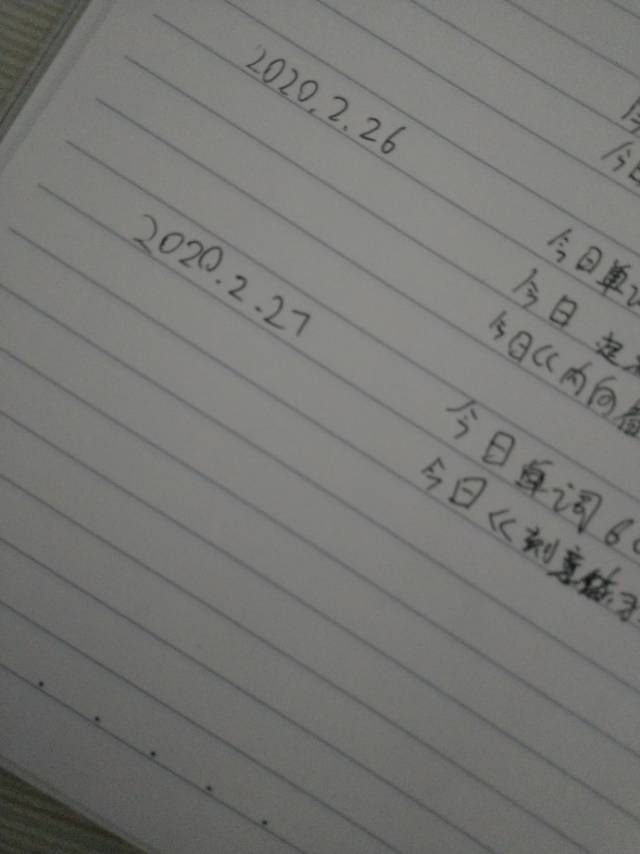 今日
2020.2.26
今日单词
今日
今日《内向
2020.2.27
今日单词 60
今日《刻意练习